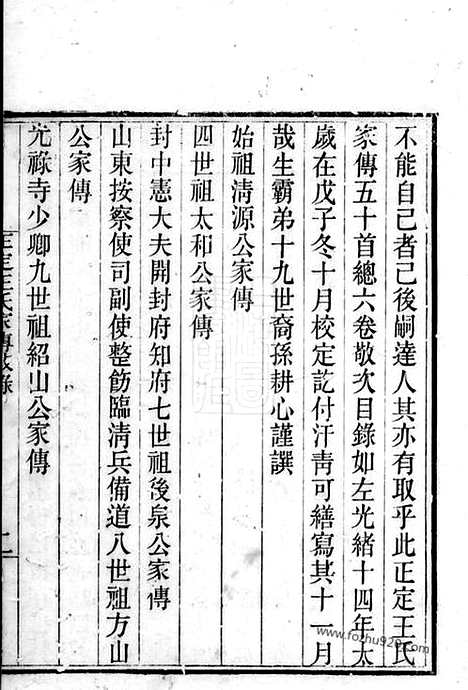 不能自己者已後嗣達人其亦有取乎此正定王氏
家傳五十首總六卷敬次目錄如左光緒十四年太
歲在戊子冬十月校定訖付汗靑可繕寫其十一月
哉生霸弟十九世裔孫耕心謹譔
始祖清源公家傳
四世祖太和公家傳
封中憲大夫開封府知府七世祖後泉公家傳
山東按察使司副使整飭臨清兵備道八世祖方山
公家傳
光祿寺少卿九世祖紹山公家傳
正定王氏家傳敘錄
二
www.fozhu920.com